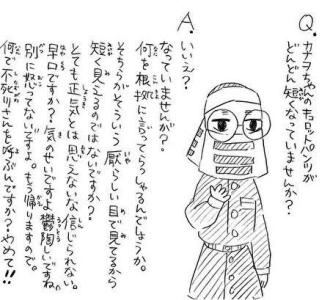 Q.
カナヲちゃんのキュロットパンツが
どんどん短くなっていませんか?
A.
いいえ?
なっていませんが?
何を根拠に言ってらっしゃるんでしょうか。
そちらがそういう厭らしい目で見てるから
短く見えるのではないですか?
とても正気とは思えないな信じられない。
早口ですか?気のせいですよ鬱陶しいですね。
別に怒ってないですよ。もう帰りますので。
何で不死川さんを呼ぶんですか?やめて!!